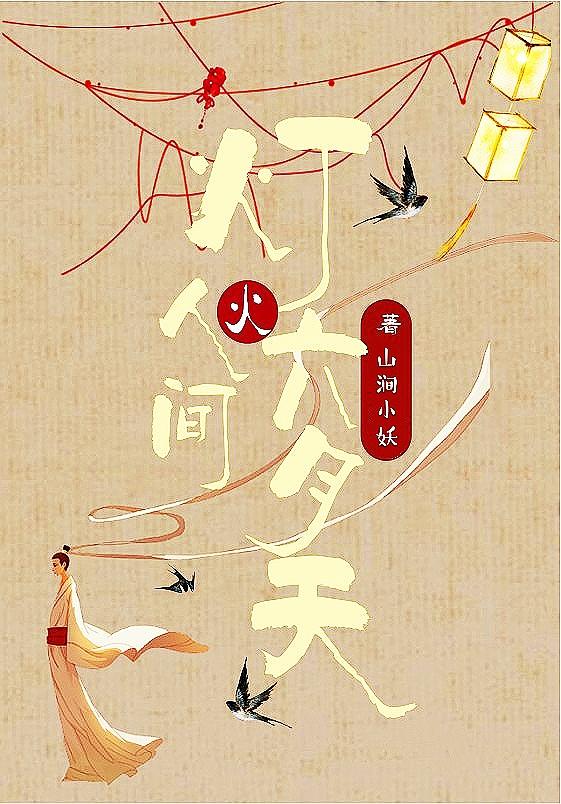 灯火
人间
六月天
著山涧小妖